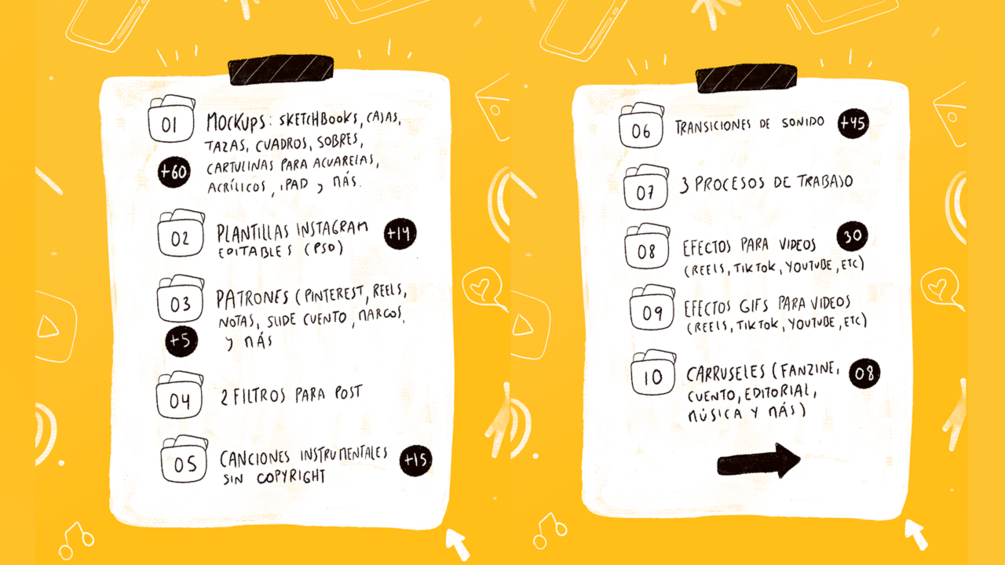 01
MOCKUPS: SKETCHBOOKS, CAJAS,
TAZAS, CUADROS, SOBRES,
+60
CARTULINAS PARA ACUARELAS,
ACRÍLICOS, iPAD y MÁS.
02
PLANTILLAS INSTAGRAM
EDITABLES (PSD)
+14
03
PATRONES (PINTEREST, REELS,
NOTAS, SLIDE CUENTO, MARCOS,
y MÁS
+5
04
2 FILTROS PARA POST
05
CANCIONES INSTRUMENTALES
SIN COPYRIGHT
+15
06
TRANSICIONES DE SONIDO
+45
07
3 PROCESOS DE TRABAJO
08
EFECTOS PARA VIDEOS
30
(REELS, TIKTOK, YOUTUBE, ETC)
09
EFECTOS GIFS PARA VIDEOS
(REELS, TIKTOK, YOUTUBE, ETC)
10
CARRUSELES (FANZINE,
CUENTO, EDITORIAL,
MÚSICA Y MÁS)
08